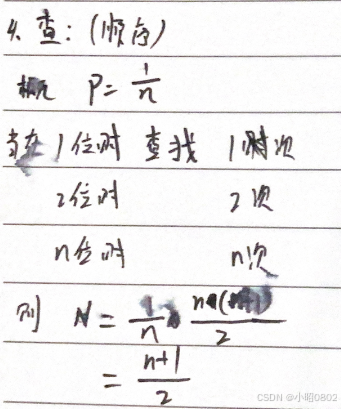 4. 查：(顺序)
概况 P = 1/n
当在 1位时 查找 1次
2位时 2次
n位时 n次
则 N = 1/n · n(n+1)/2
= n+1/2
CSDN @小昭0802